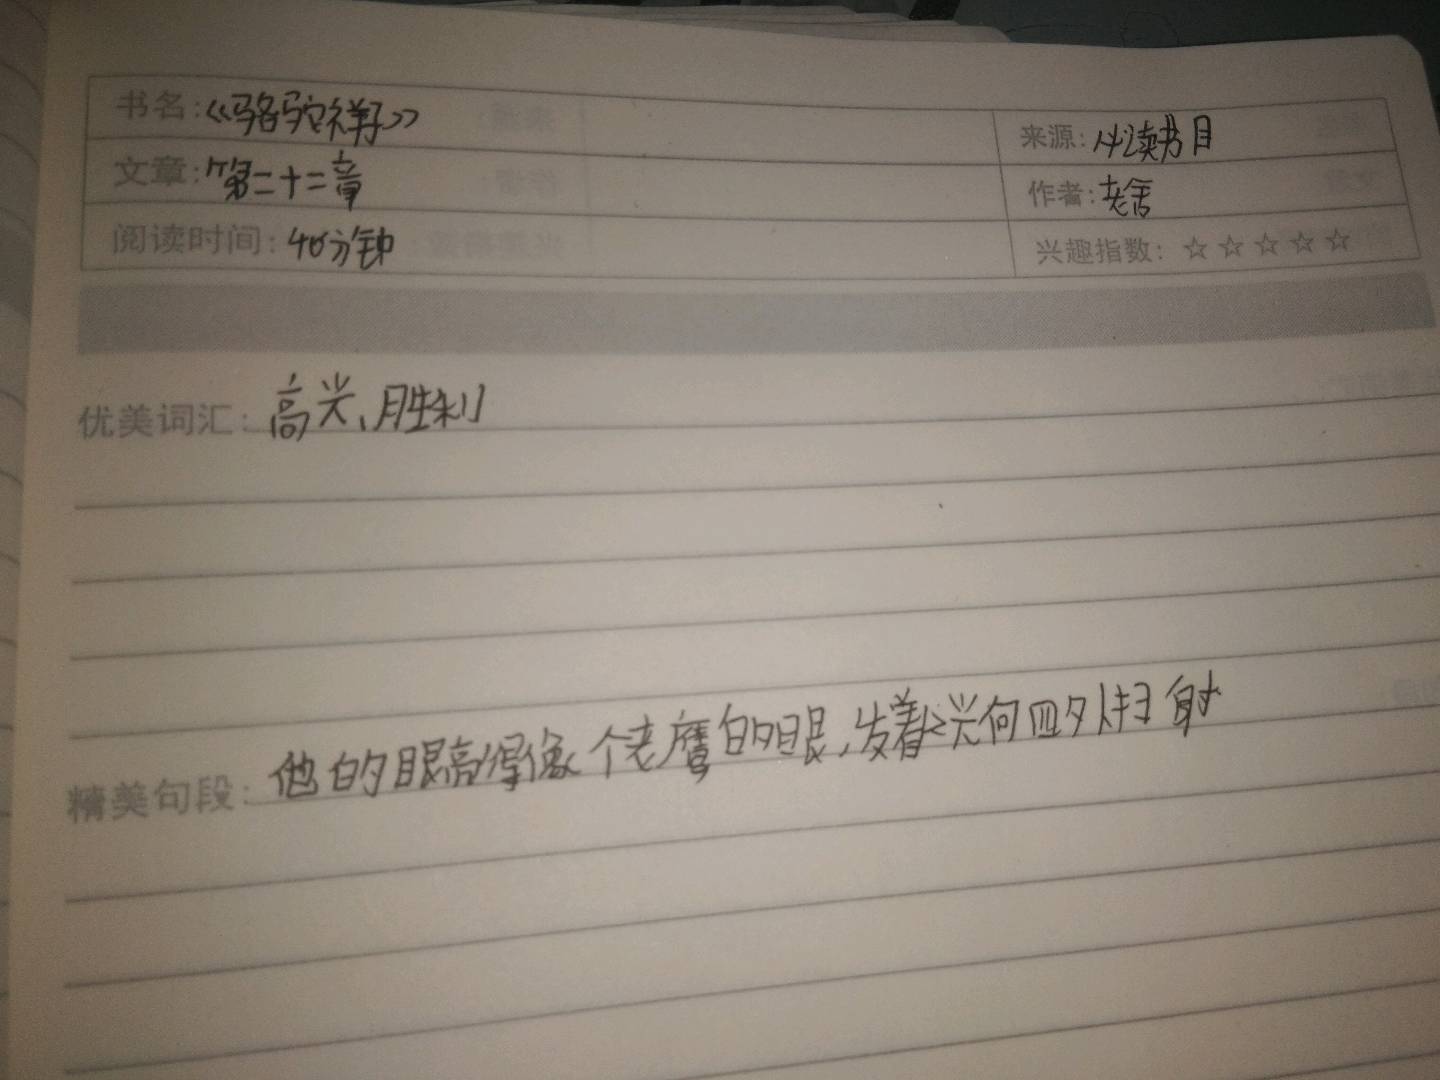 书名:《骆驼祥子》
来源:必读书目
文章:第二十二章
作者:老舍
阅读时间:40分钟
兴趣指数:☆☆☆☆☆
优美词汇:高兴、胜利
精美句段:他的眼亮得像个老鹰的眼,发着光向四外扫射